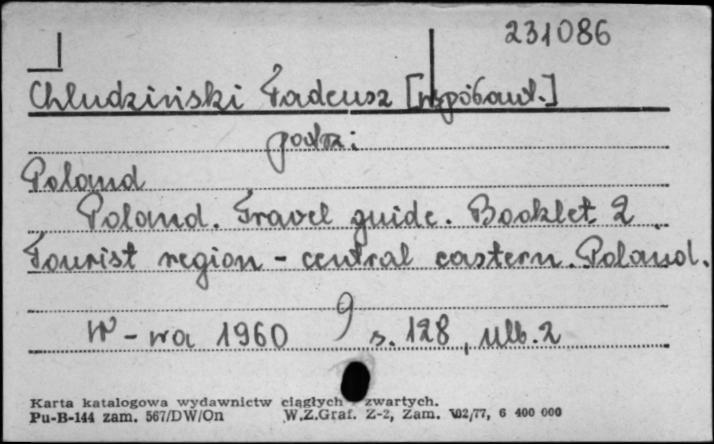 231086
Chludziński Tadeusz [współaut.]
podz:
Poland
Poland. Travel guide. Booklet 2
Tourist region - central eastern. Poland.
W-wa 1960 s. 128, nlb. 2
Karta katalogowa wydawnictw ciągłych zwartych.
Pu-B-144 zam. 567/DW/On W.Z.Graf. Z-2, Zam. 102/77, 6 400 000